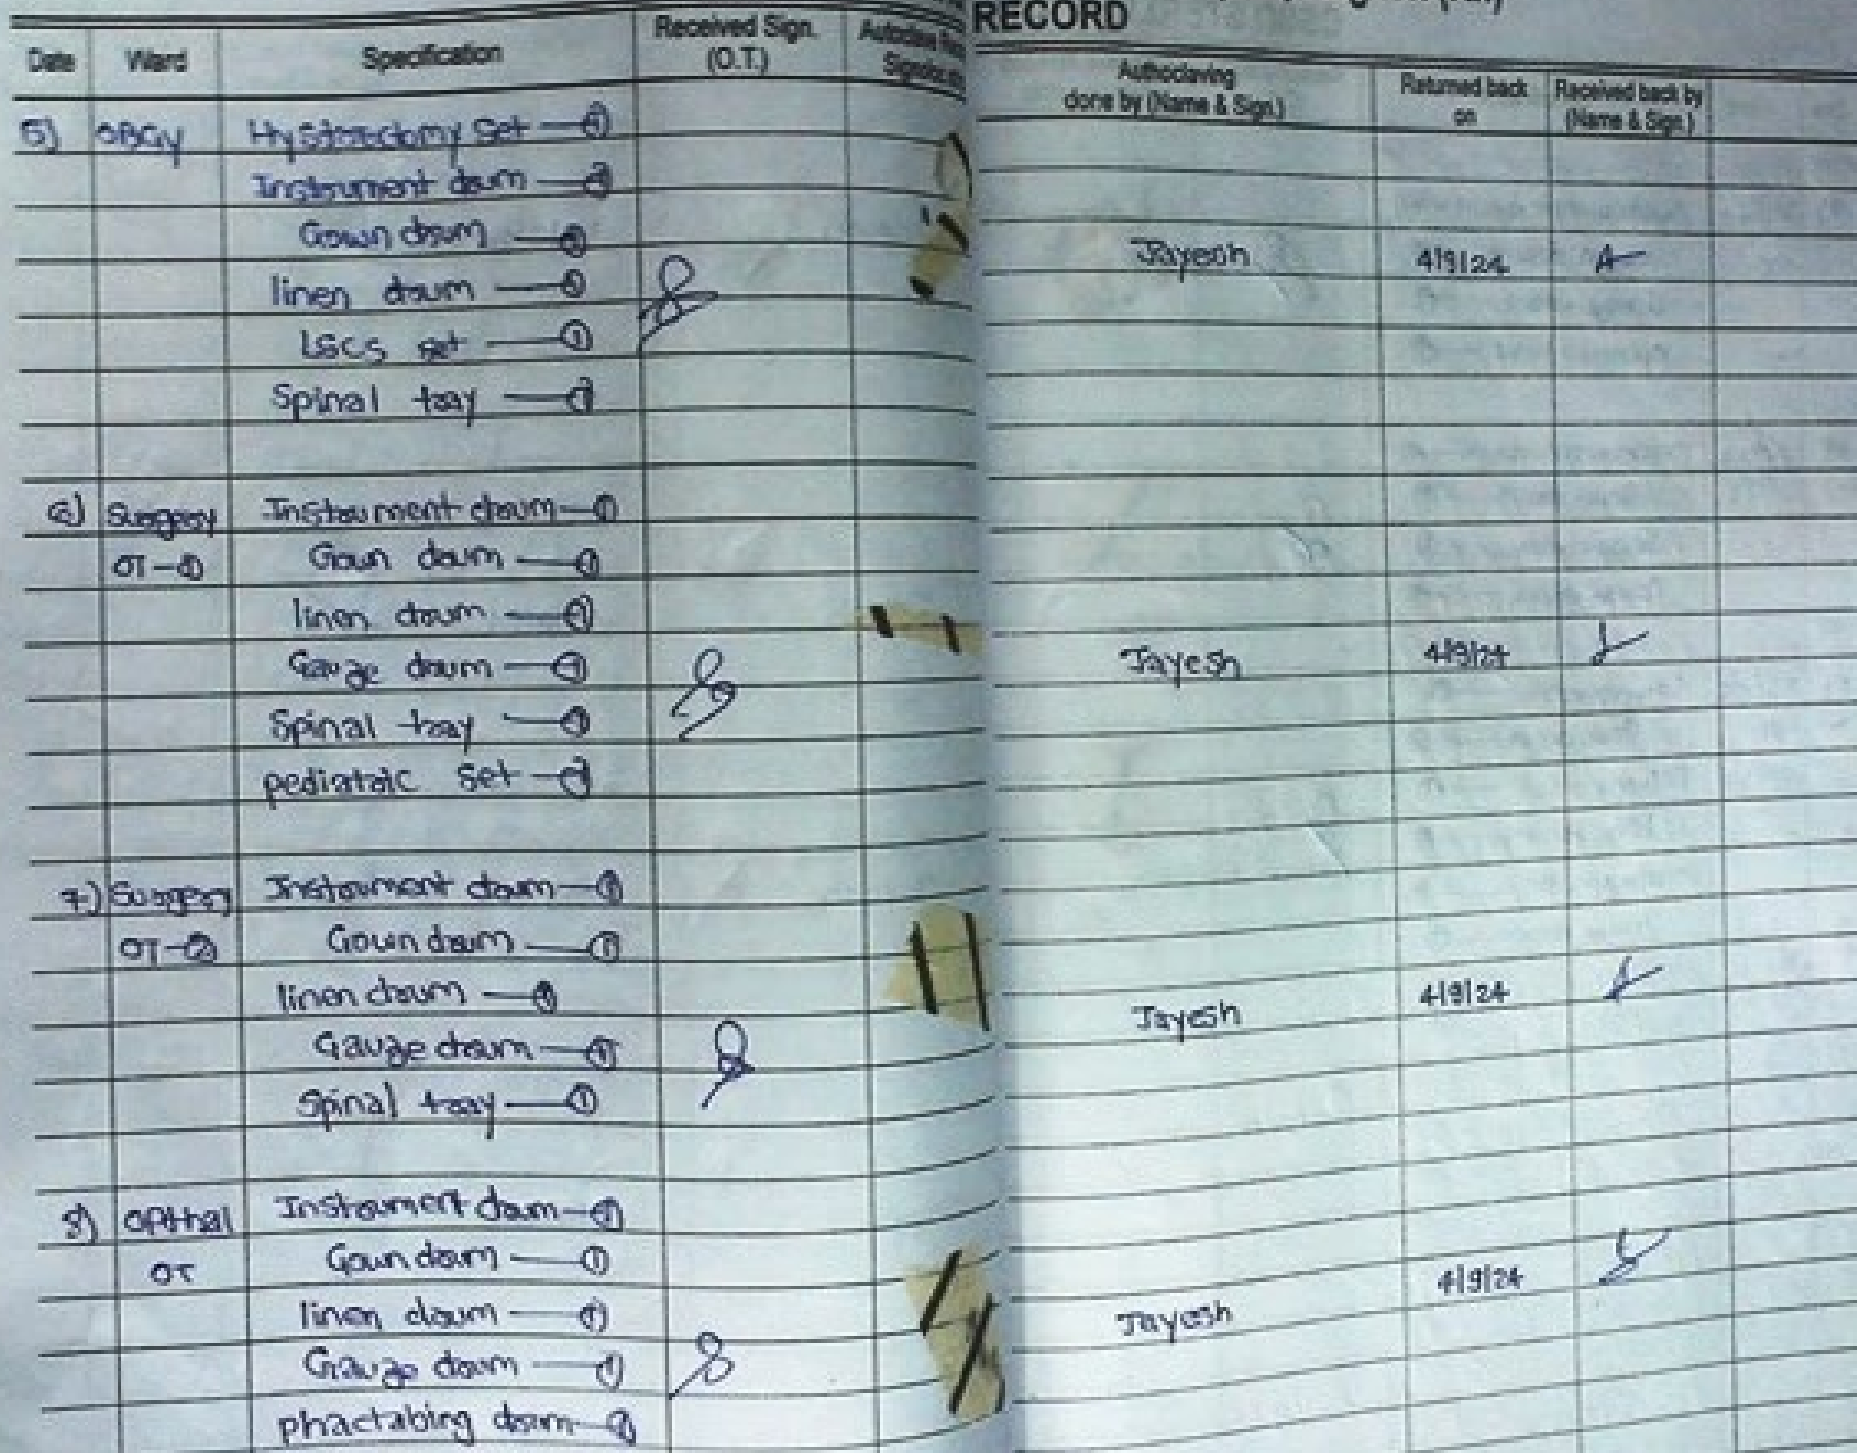 RECORD
Date Ward Specification Received Sign. (O.T.) Autoclave
Authoclaving done by (Name & Sign.) Returned back on Received back by (Name & Sign.)
5) OBGY Hysterectomy Set
Instrument drum
Gown drum
Jayesh 4/9/24
linen drum
LSCS set ①
Spinal tray
6) Surgery Instrument drum ①
OT-① Gown drum ①
linen drum ①
Gauze drum ①
Jayesh 4/9/24
Spinal tray
pediatric set
7) Surgery Instrument drum ①
OT-② Gown drum ①
linen drum ①
4/9/24
Jayesh
Gauze drum ①
Spinal tray ①
8) OPthal Instrument drum
OT Gown drum ①
4/9/24
linen drum ①
Jayesh
Gauze drum ①
drum